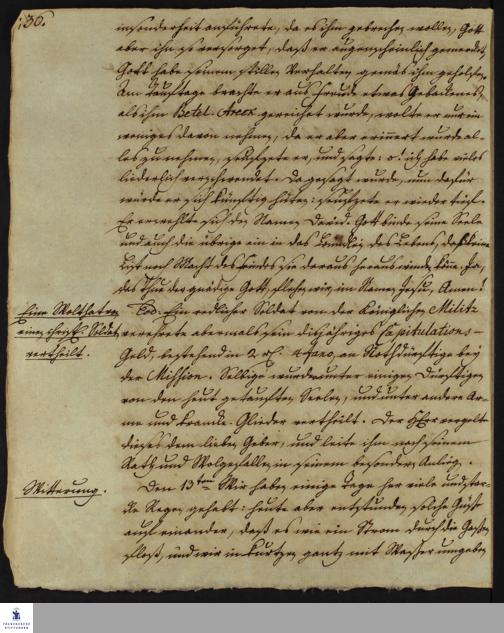 130.
insonderheit anführete, da es ihm gebrechen wollen, Gott
aber ihn so versorget, daß er augenscheinlich gemerdet,
Gott habe seinem stillen Verhalten gemäs ihm geholfen.
Am Tauftage brachte er aus Freude etwas Gebackenes,
als ihm Betel-Areck gereichet wurde, wolte er nur ein
weniges davon nehmen, da er aber erinnert wurde al-
les zu nehmen, seufzete er, und sagte: o! ich habe vieles
liederlich verschwendet. Da gesagt wurde, nun dafür
würde er sich künftig hüten: seufzete er wieder tief.
Er erwehlte sich den Namen David. Gott binde seine Seele
und auch die übrige ein in das Bündlein des Lebens, daß keine
List noch Macht des Feindes sie daraus heraus winden könne, Ja,
das thue der gnädige Gott, flehen wir, im Namen Jesu, Amen!
Eine Wolthat von
einem christl. Soldat
vertheilt.
Eod. Ein redlicher Soldat von der Königlichen Militz
verehrete abermals sein dißjähriges Capitulations-
Geld, bestehend in 2 rl. 4 fano, an Nothdürftige bey
der Mission. Selbige wurde unter einigen Dürftigen
von den heut getauften Seelen, und unter andere Ar-
me und krancke Glieder vertheilt. Der Herr vergelte
dieses dem lieben Geber, und leite ihn nach seinem
Rath und Wolgefallen in seinem besondern Anlieg.
Witterung.
Den 13ten Wir haben einige Tage her viele und star-
cke Regen gehabt: heute aber entstunden solche Güsse
auf einander, daß es wie ein Strom durch die Gassen
floß, und wir in kurtzen gantz mit Wasser umgeben
FRANCKESCHE
STIFTUNGEN